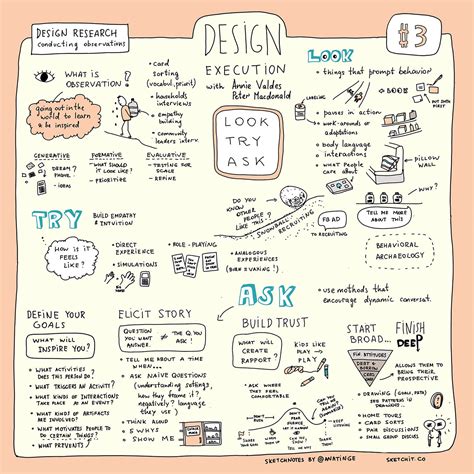 DESIGN RESEARCH
conducting observations
DESIGN
EXECUTION
with Annie Valdes
Peter Macdonald
#3
WHAT IS
OBSERVATION?
going out in the
world to learn
& be inspired
• card
sorting
(vocabul, priorit)
• households
interviews
• empathy
building
• community
leaders interv.
GENERATIVE
• DREAM?
• PHONE?
• IDEAS
FORMATIVE
• WHAT SHOULD
IT LOOK LIKE?
• PRIORITIZE
EVALUATIVE
• TESTING FOR
SCALE
• REFINE
LOOK
TRY
ASK
LOOK
• things that prompt behavior
LABELING
PUT DATA
FIRST
• pauses in action
• work-arounds or
adaptations
• body language
• interactions
• what PEOPLE
care about
PILLOW
WALL
WHY?
TELL ME MORE
ABOUT THIS
BEHAVIORAL
ARCHAEOLOGY
DO YOU
KNOW
OTHER
PEOPLE
LIKE THIS?
SNOWBALL RECRUITING
FB AD
TO RECRUITING
TRY
BUILD EMPATHY
& INTUITION
How is it
FEELS
LIKE?
• DIRECT
EXPERIENCE
• SIMULATIONS
• ROLE-PLAYING
• ANALOGOUS
EXPERIENCES
ASK
• use methods that
encourage dynamic conversat.
DEFINE YOUR
GOALS
WHAT WILL
INSPIRE YOU?
• WHAT ACTIVITIES
DOES THIS PERSON DO?
• WHAT TRIGGERS AN ACTIVITY?
• WHAT KIND OF INTERACTIONS
TAKE PLACE AT AN EVENT?
• WHAT KINDS OF ARTIFACTS
ARE INVOLVED?
• WHAT MOTIVATES PEOPLE TO
DO CERTAIN THINGS?
• WHAT PREVENTS?
ELICIT STORY
QUESTION
YOU WANT
ANSWER.
≠
THE Q. YOU
ASK!
• TELL ME ABOUT A TIME
WHEN...
• ASK NAIVE QUESTIONS
(understanding settings,
how they frame it?,
negatively? language they
use)
• THINK ALOUD
• 5 WHYS
• SHOW ME
BUILD TRUST
WHAT WILL
CREATE
RAPPORT?
KIDS LIKE
PLAY
PLAY
• ASK WHERE
THEY FEEL
COMFORTABLE
START
BROAD...
FINISH
DEEP
ALLOWS THEM TO
BRING THEIR
PERSPECTIVE
• HOME TOURS
• CARD SORTS
• PAIR DISCUSSIONS
• SMALL GROUP DISCUSS
SKETCHNOTES BY @ANATINGE
SKETCHIT.CO